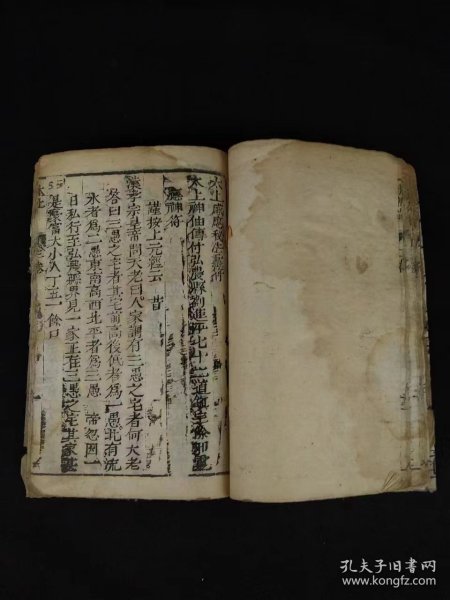 太上神仙傳付弘農縣劉進平七十二道鎮宅
靈神符
謹按上元經云 昔
漢孝宗皇帝問大老曰人家謂有三愚之宅者何大老
答曰三愚之宅者其宅前高後低者為一愚北有流
水者為二愚東南高西北平者為三愚 帝忽因一
日私行至弘農縣界見一家正在三愚之宅其家甚
是豪富大小人丁五 餘口
孔夫子旧书网
www.kongfz.com